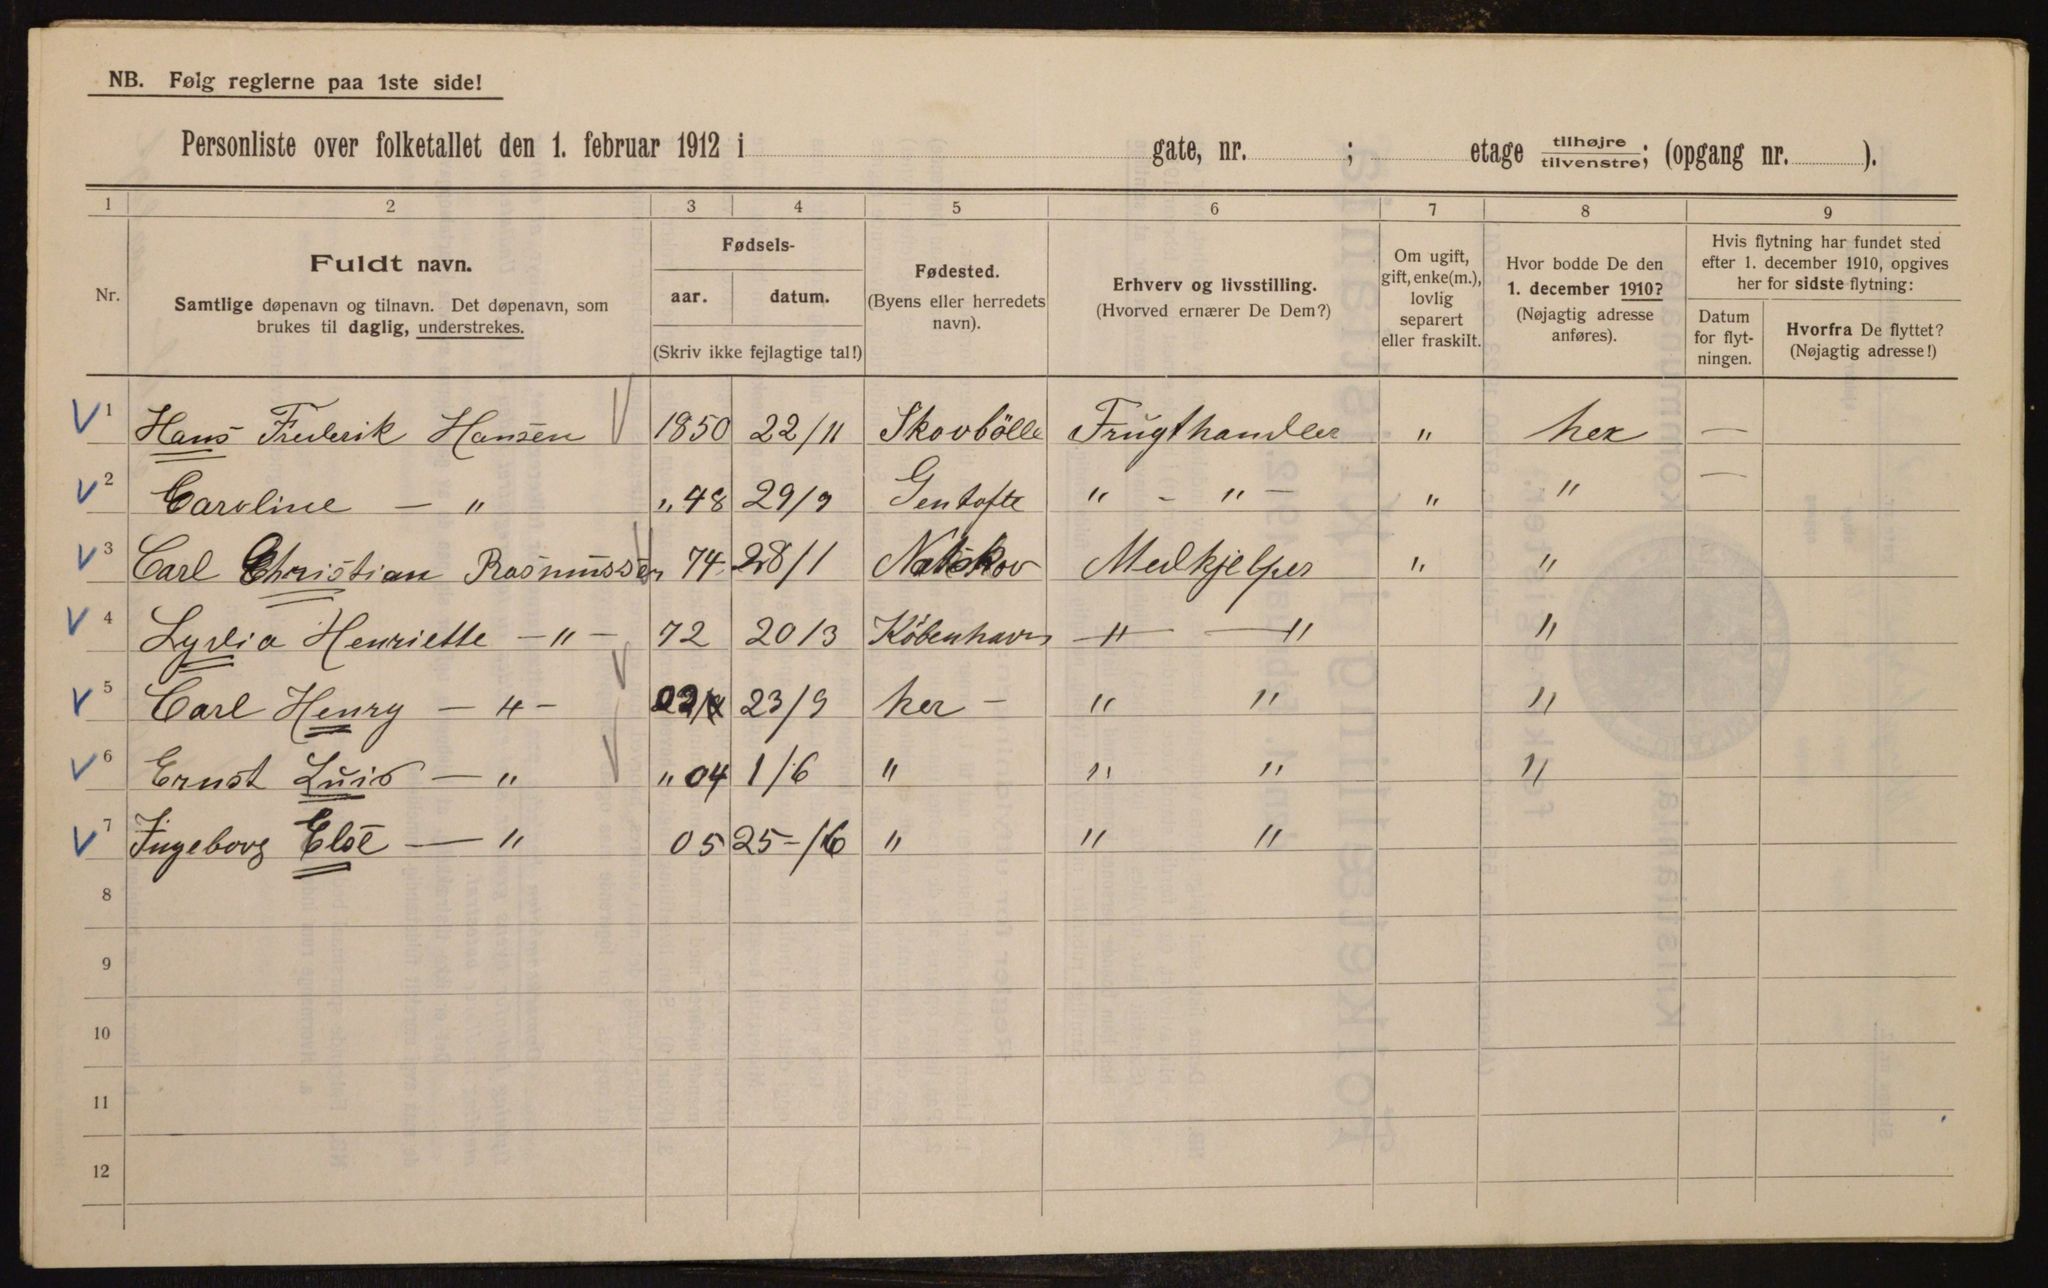 NB. Følg reglerne paa 1ste side!
Personliste over folketallet den 1. februar 1912 i gate, nr. ; etage tilhøjre tilvenstre; (opgang nr. ).
1 2 3 4 5 6 7 8 9
Nr.
Fuldt navn.
Samtlige døpenavn og tilnavn. Det døpenavn, som
brukes til daglig, understrekes.
Fødsels-
aar. datum.
(Skriv ikke fejlagtige tal!)
Fødested.
(Byens eller herredets
navn).
Erhverv og livsstilling.
(Hvorved ernærer De Dem?)
Om ugift,
gift, enke(m.),
lovlig
separert
eller fraskilt.
Hvor bodde De den
1. december 1910?
(Nøjagtig adresse
anføres).
Hvis flytning har fundet sted
efter 1. december 1910, opgives
her for sidste flytning:
Datum
for flyt-
ningen.
Hvorfra De flyttet?
(Nøjagtig adresse!)
V 1 Hans Frederik Hansen 1850 22/11 Skovbölle Frugthandler " her —
V 2 Caroline — " " 48 29/9 Gentofte " - " - " " —
V 3 Carl Christian Rasmussen 74 28/1 Medkjelper " "
V 4 Lydia Henriette — " — 72 20/3 København — " — " "
V 5 Carl Henry — " — 23/9 her — " " "
V 6 Ernst Luis — " " 04 1/6 " " " "
V 7 Ingeborg Else — " 05 25-/6 " " "
8
9
10
11
12